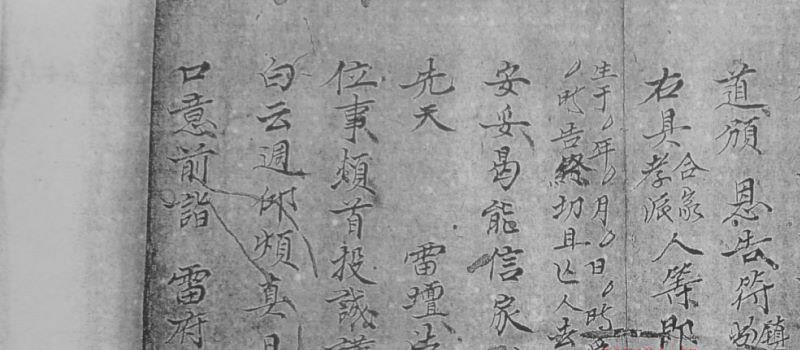 道頒 恩告符
鎮
右具
合家
孝派
人等即
生于〇年〇月〇日〇時
〇時告終切且亡人去
安妥曷能信家
先天 雷壇
位事頫首投誠
白云週仰頫真
口意前詣 雷府